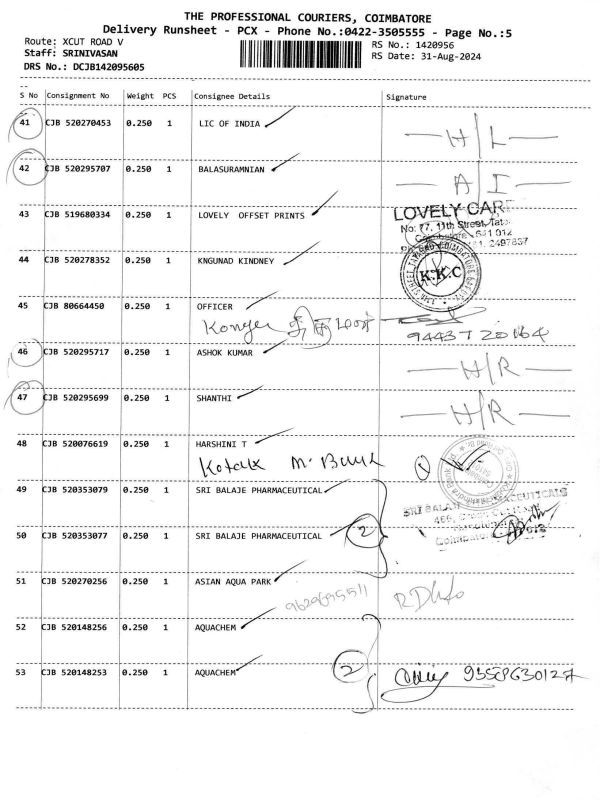 THE PROFESSIONAL COURIERS, COIMBATORE
Delivery Runsheet - PCX - Phone No.:0422-3505555 - Page No.:5
Route: XCUT ROAD V
RS No.: 1420956
Staff: SRINIVASAN
RS Date: 31-Aug-2024
DRS No.: DCJB142095605
S No Consignment No Weight PCS Consignee Details Signature
41 CJB 520270453 0.250 1 LIC OF INDIA H/L
42 CJB 520295707 0.250 1 BALASURAMNIAN A/I
43 CJB 519680334 0.250 1 LOVELY OFFSET PRINTS LOVELY CARE
No: 77, 11th Street, Tata
Coimbatore - 641 012
2497837
44 CJB 520278352 0.250 1 KNGUNAD KINDNEY K.K.C
45 CJB 80664450 0.250 1 OFFICER
94437 20164
46 CJB 520295717 0.250 1 ASHOK KUMAR H/R
47 CJB 520295699 0.250 1 SHANTHI H/R
48 CJB 520076619 0.250 1 HARSHINI T
Kotak M. Bank 1
49 CJB 520353079 0.250 1 SRI BALAJE PHARMACEUTICAL
50 CJB 520353077 0.250 1 SRI BALAJE PHARMACEUTICAL 2
51 CJB 520270256 0.250 1 ASIAN AQUA PARK
9629695511
52 CJB 520148256 0.250 1 AQUACHEM
2
53 CJB 520148253 0.250 1 AQUACHEM